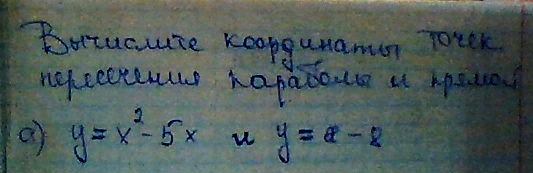 Вычислите координаты точек
пересечения параболы и прямой
а) y = x² - 5x и y =